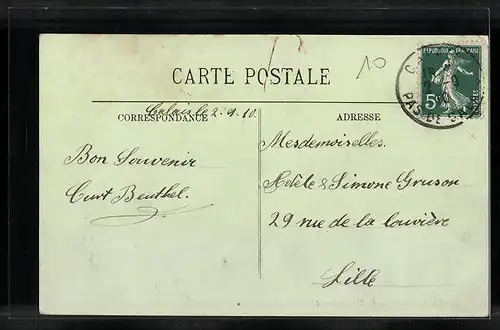 10
RÉPUBLIQUE FRANÇAISE
5c
POSTES
PAS DE
CARTE POSTALE
Calais le 2.9.10.
CORRESPONDANCE
ADRESSE
Bon Souvenir
Curt Beuthel.
Mesdemoiselles.
Hélène & Simone Gruson
29 rue de la louvière
Lille